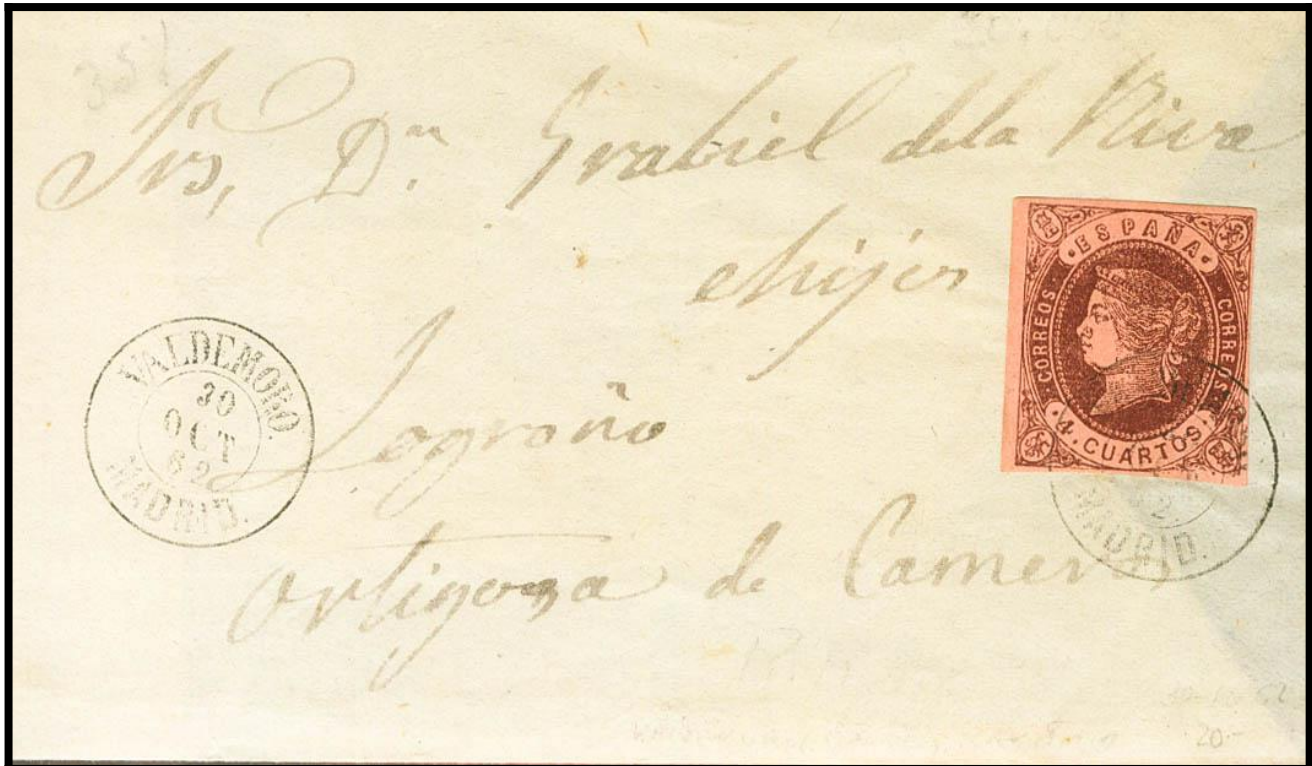 Srs, Dn. Grabiel dela Riva
ehijos
Logroño
Ortigosa de Cameros
VALDEMORO.
30
OCT
62
MADRID.
·ESPAÑA·
CORREOS
CORREOS
·4·CUARTOS·
MADRID.
20-